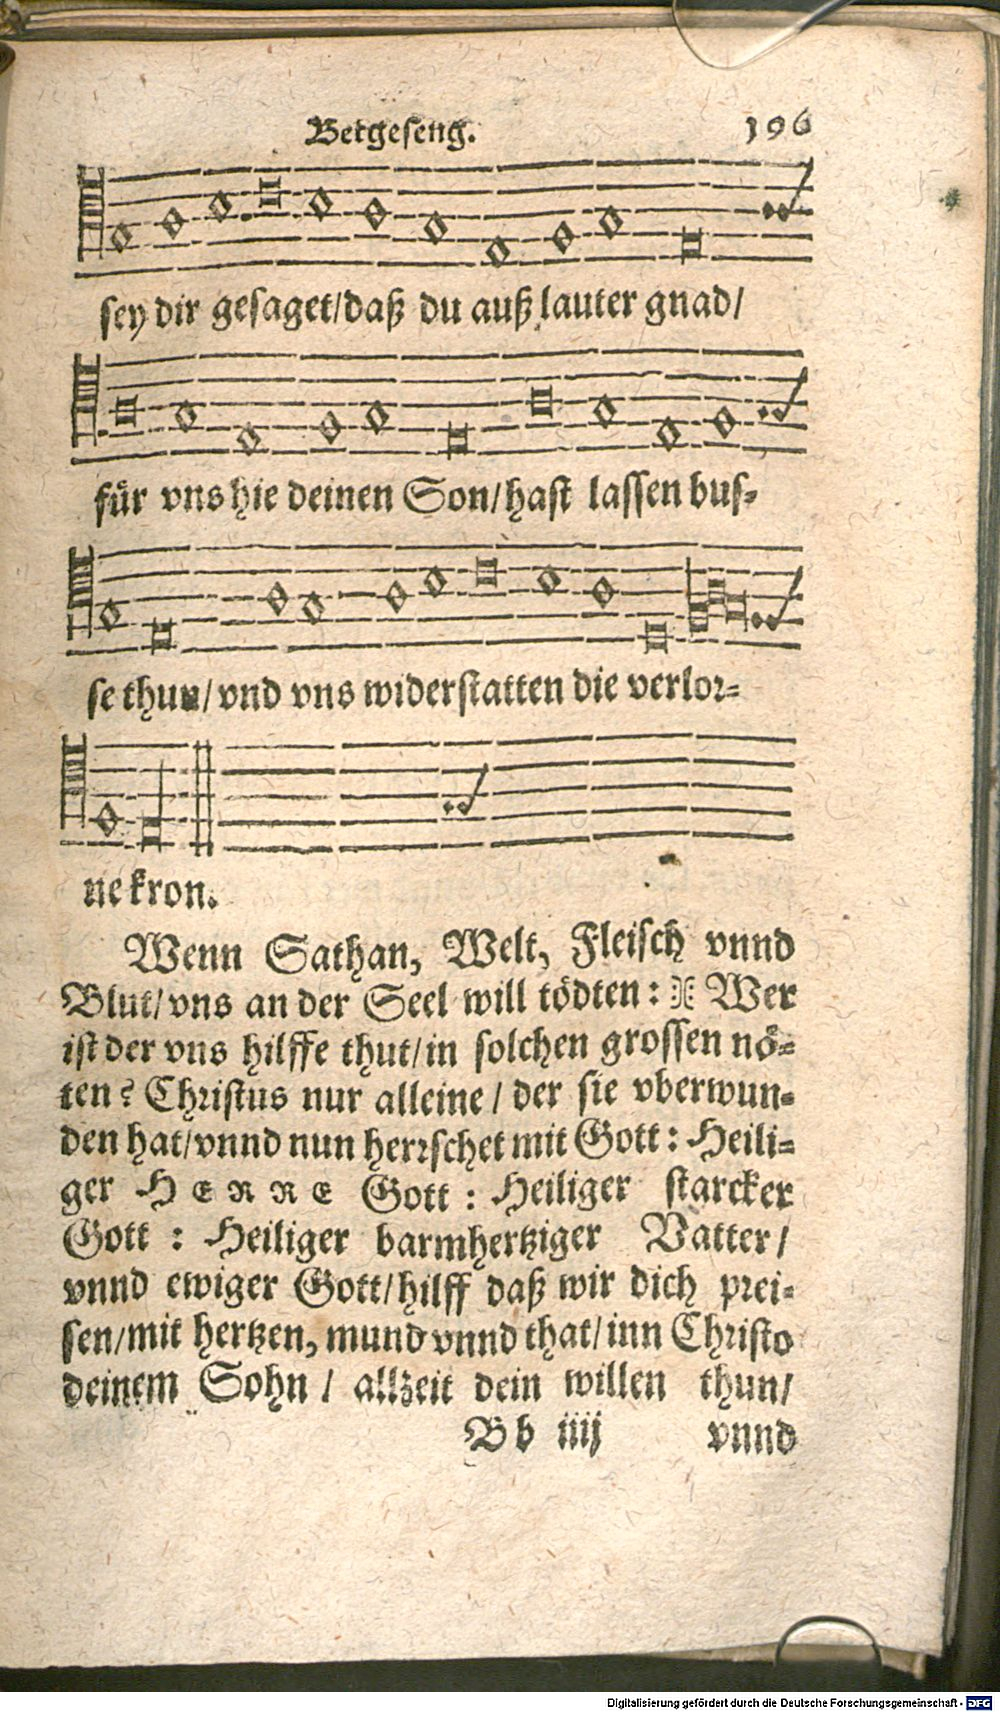 Betgeseng. 196
sey dir gesaget/daß du auß lauter gnad/
für vns hie deinen Son/hast lassen bus-
se thun/vnd vns widerstatten die verlor-
ne kron.
Wenn Sathan, Welt, Fleisch vnnd
Blut/vns an der Seel will tödten: Wer
ist der vns hilffe thut/in solchen grossen nö-
ten? Christus nur alleine/der sie vberwun-
den hat/vnnd nun herrschet mit Gott: Heili-
ger HERRE Gott: Heiliger starcker
Gott: Heiliger barmhertziger Vatter/
vnnd ewiger Gott/hilff daß wir dich prei-
sen/mit hertzen, mund vnnd that/inn Christo
deinem Sohn/allzeit dein willen thun/
Bb iiij vnnd
Digitalisierung gefördert durch die Deutsche Forschungsgemeinschaft - DFG